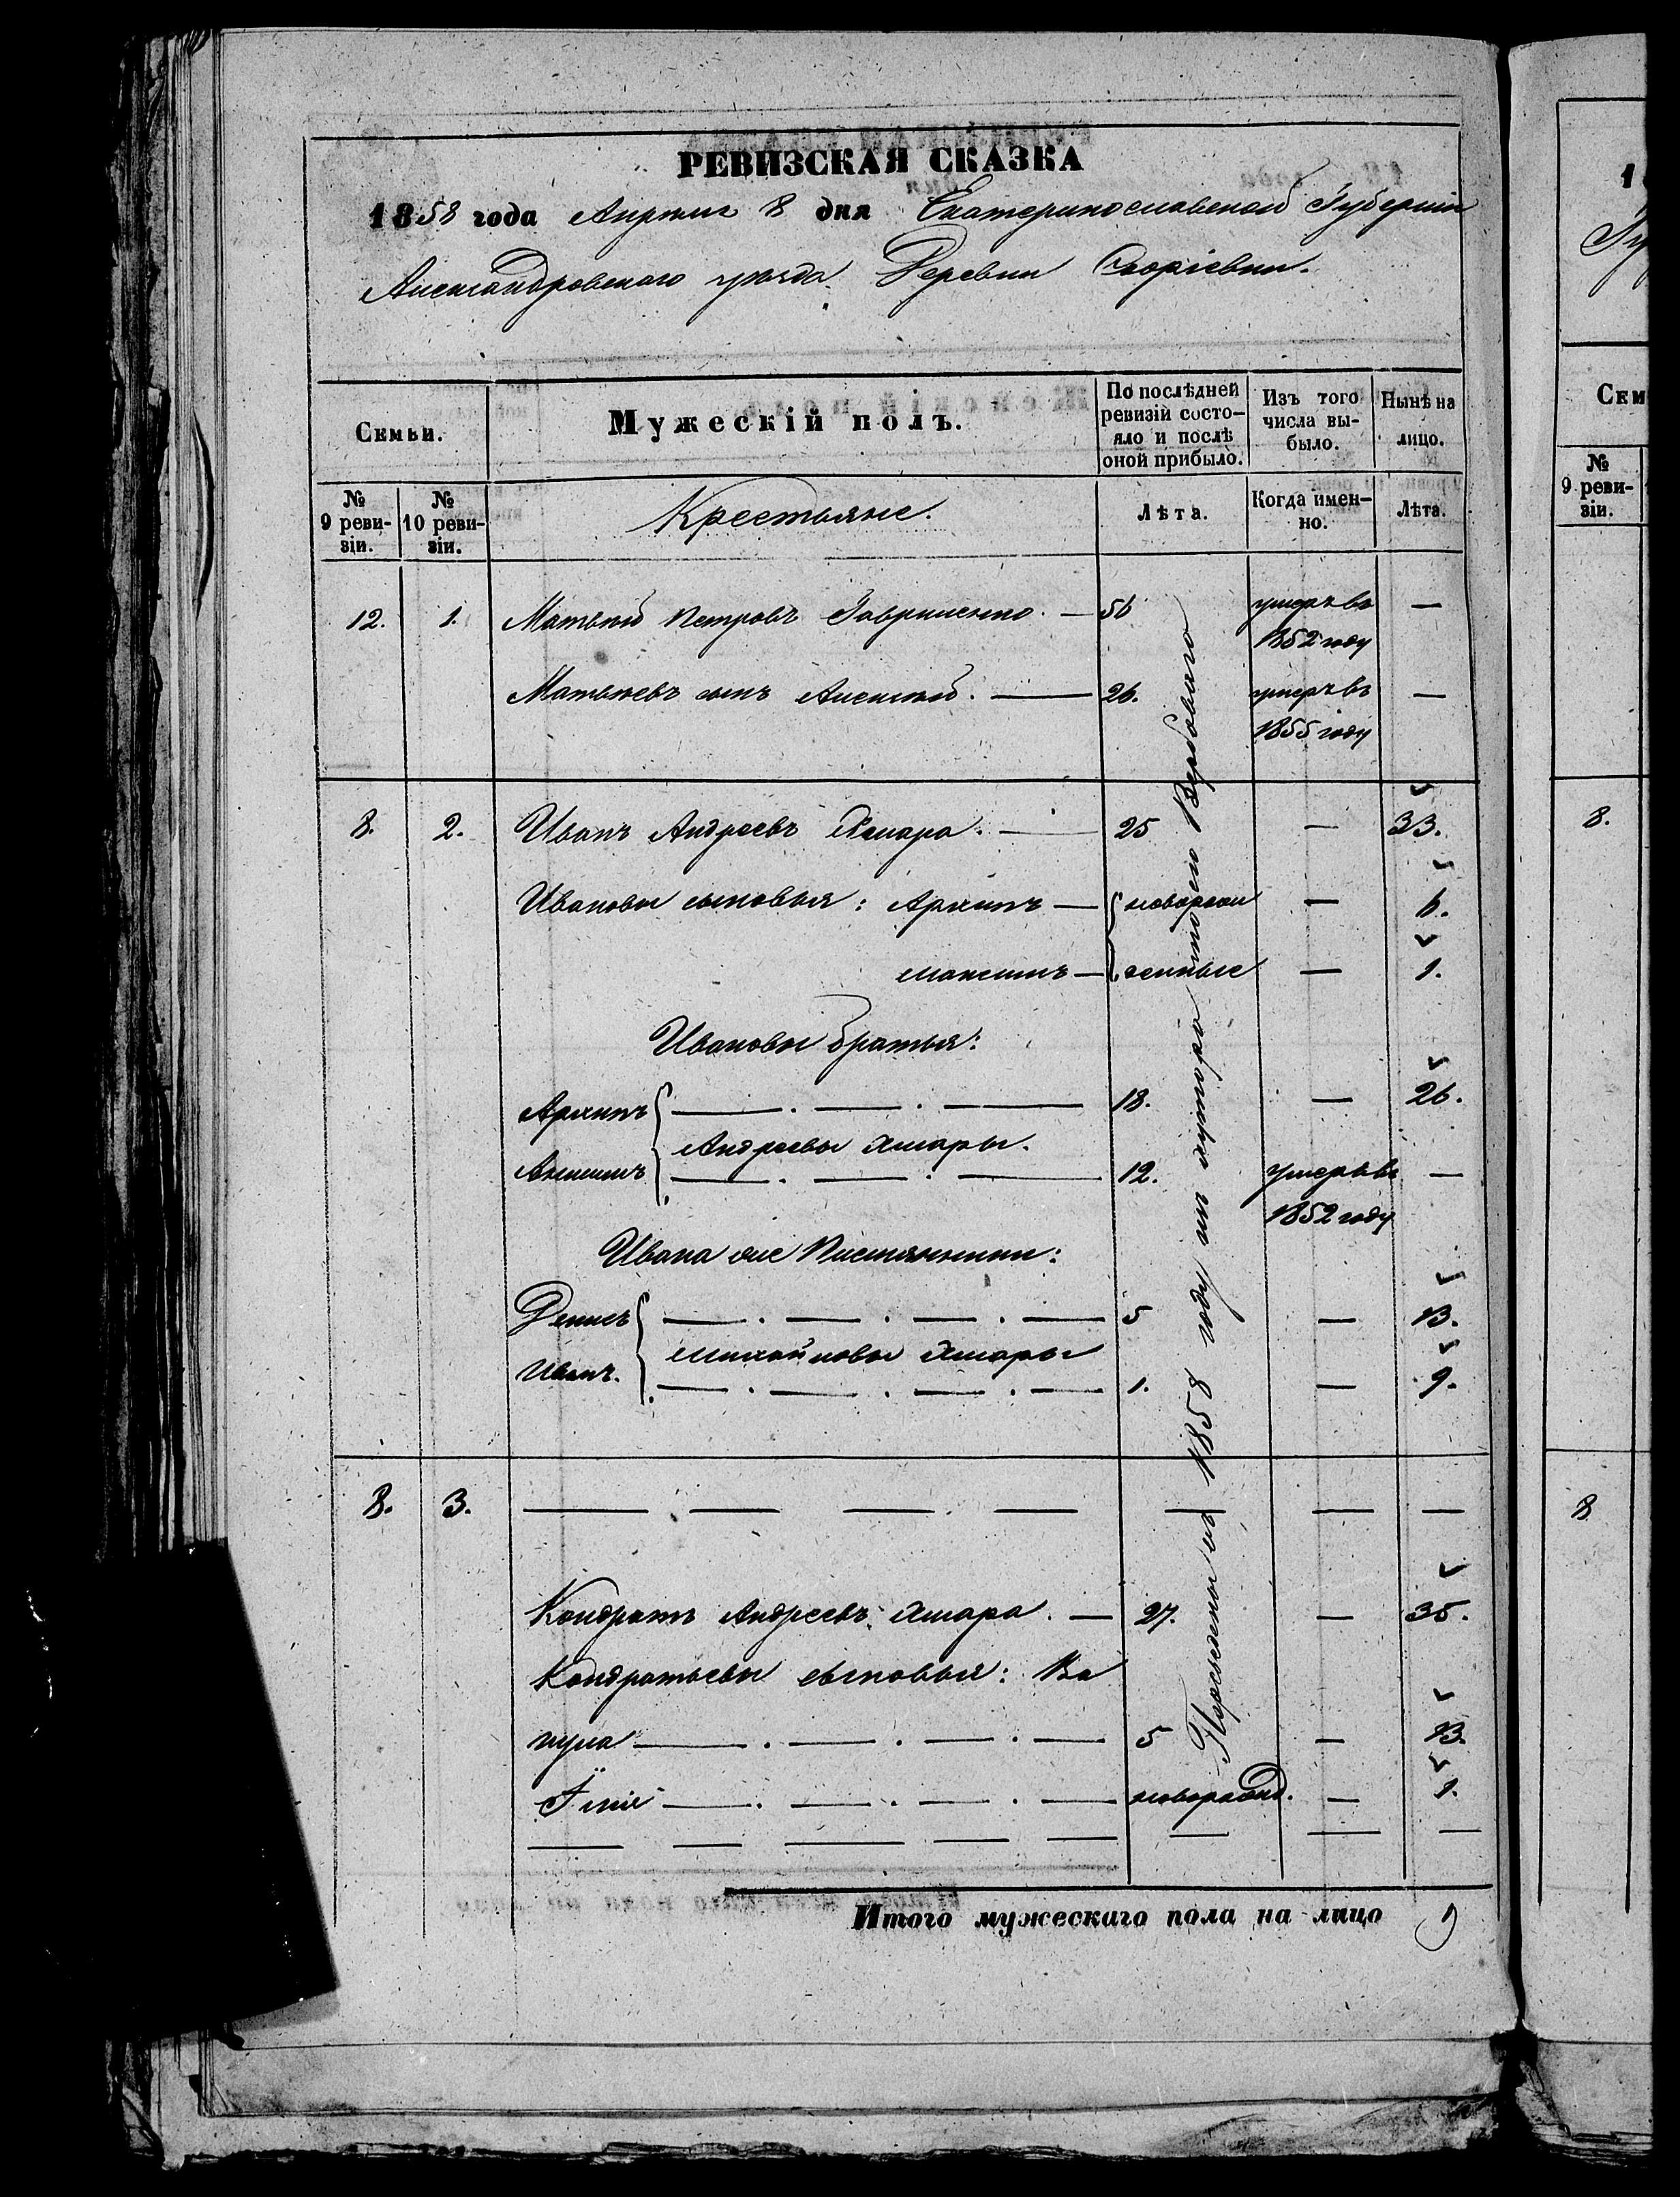 РЕВИЗСКАЯ СКАЗКА
1858 года Апрѣля 8 дня Екатеринославской Губерніи
Александровскаго уѣзда. Деревни
Семьи.
Мужескій полъ.
По послѣдней ревизій состо-
яло и послѣ
оной прибыло.
Изъ того
числа вы-
было.
Нынѣ на
лицо.
№
9 реви-
зіи.
№
10 реви-
зіи.
Крестьяне.
Лѣта.
Когда имен-
но.
Лѣта.
12. 1. Матвѣй Петровъ Гавриленко. — 56 умеръ въ —
1852 году
Матвѣевъ сынъ Алексѣй. — 26. умеръ въ —
1855 году
8. 2. Иванъ Андреевъ Хмара. — 25 — 33.
Ивановы сыновья: Архипъ — новорож — 6.
Максимъ — денные — 1.
Ивановы братья:
Архипъ — . — . — 18. — 26.
Андреевы Хмары.
— . — . — 12. умеръ въ —
1852 году
Ивана же Племянники:
Денисъ — . — . — . — 5 — 13.
Михайловы Хмары
Иванъ. — . — . — . — 1. — 9.
8. 3. — — — — — — —
Кондратъ Андреевъ Хмара. — 27. — 35.
Кондратьевы сыновья: Ва
кула — . — . — . — 5 — 13.
— . — . — . — новорожд. — 1.
— — — — — — — —
Переведены въ 1858 году изъ хутора Вербоваго
Итого мужескаго пола на-лицо 9
1
Гу
Сем
№
9 реви-
зіи.
8.
8